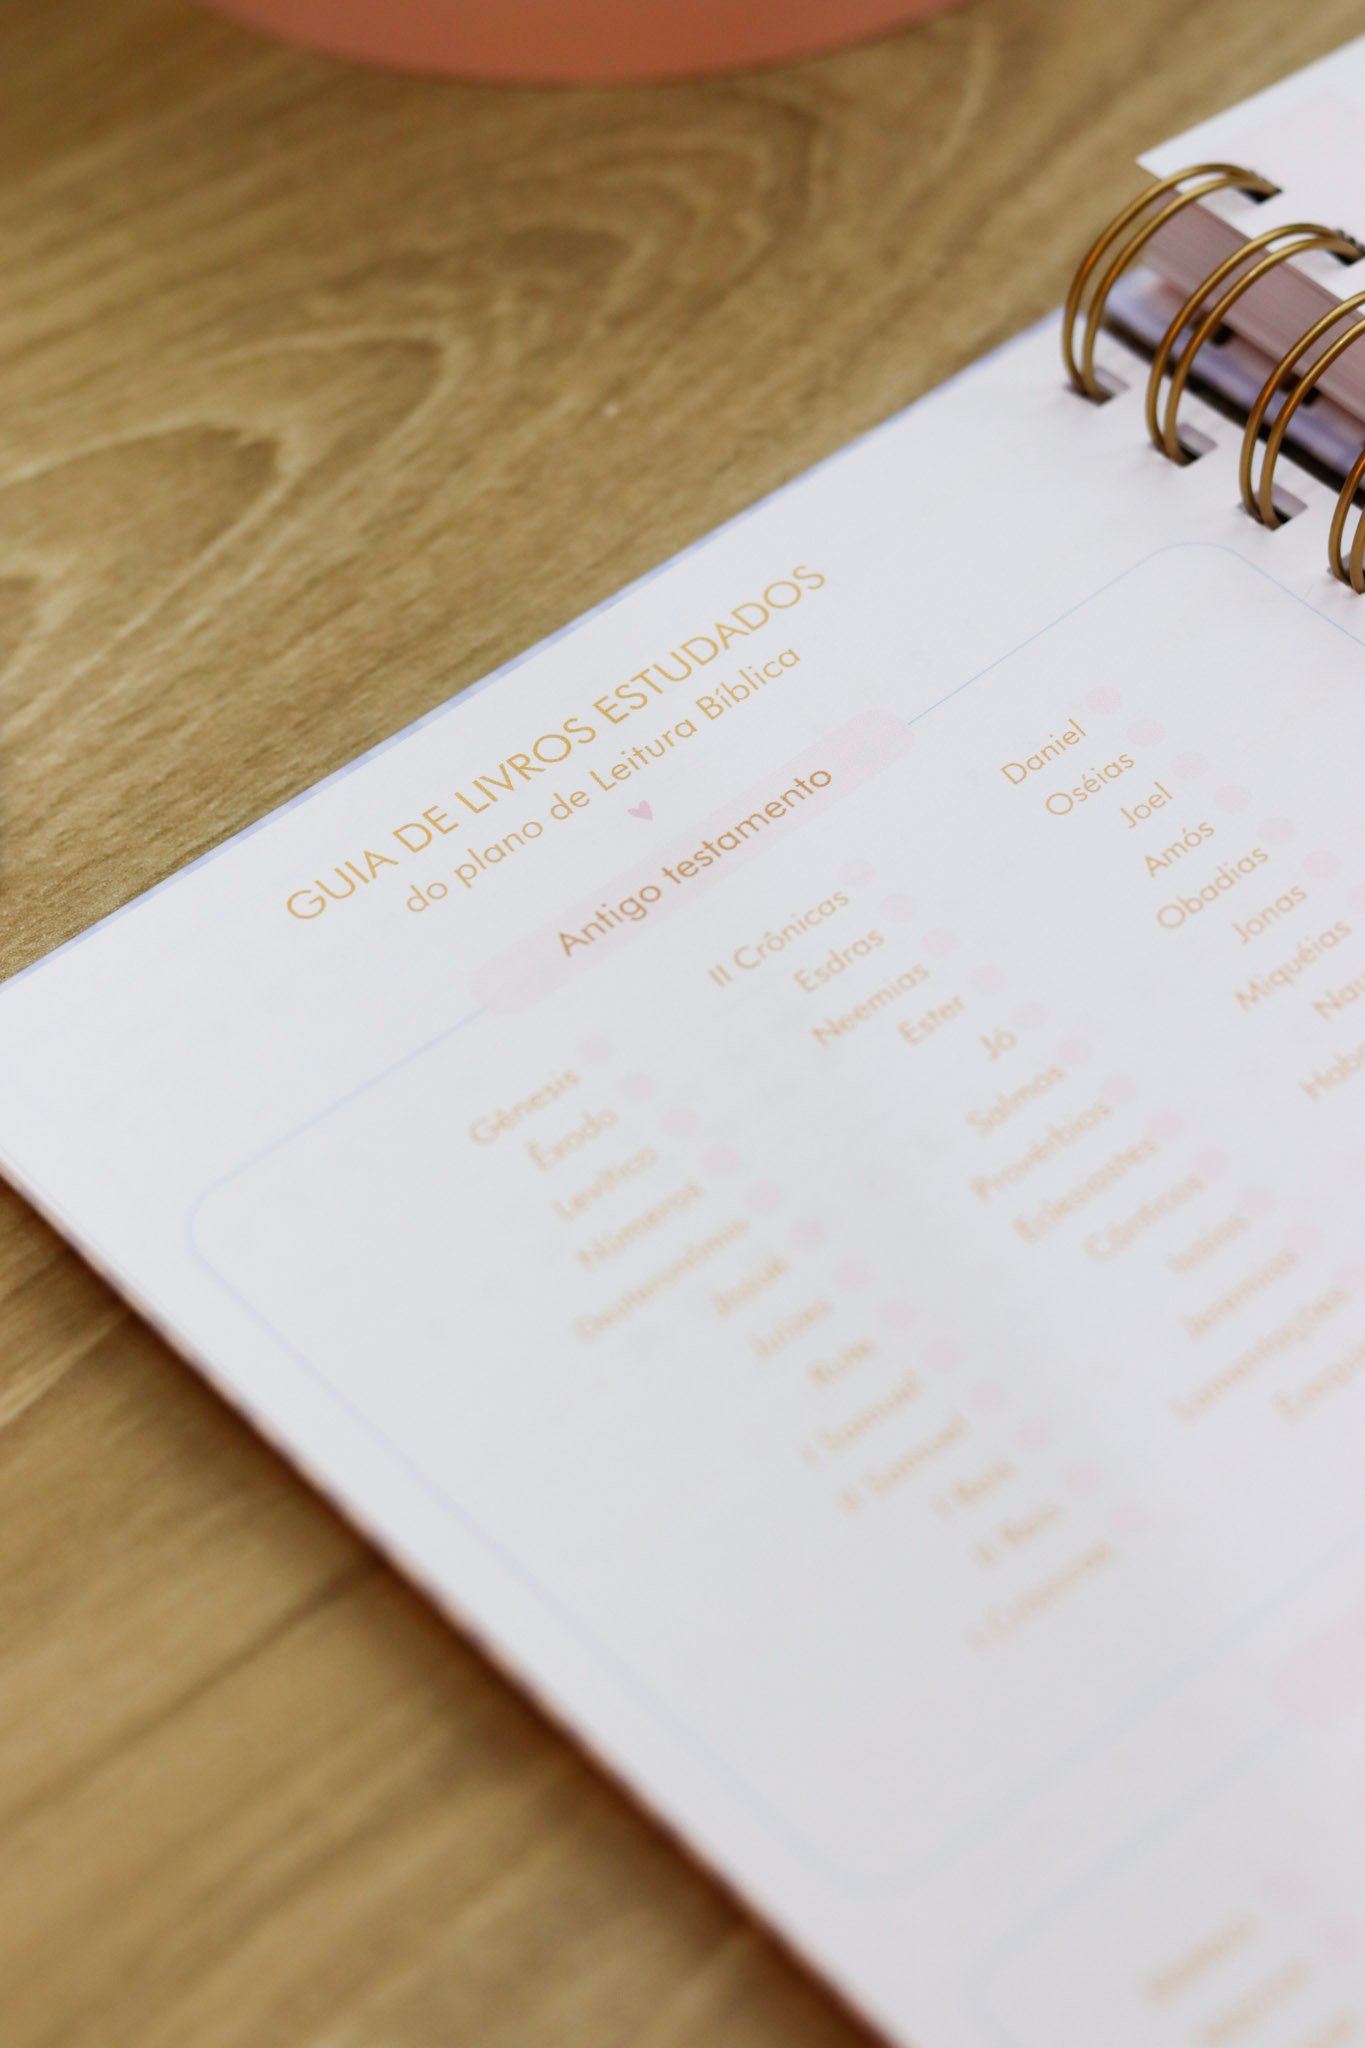 GUIA DE LIVROS ESTUDADOS
do plano de Leitura Bíblica
Antigo testamento
Gênesis
Êxodo
Levítico
Números
Deuteronômio
Josué
Juízes
Rute
I Samuel
II Samuel
I Reis
II Reis
II Crônicas
Esdras
Neemias
Ester
Jó
Salmos
Provérbios
Eclesiastes
Cânticos
Isaías
Jeremias
Lamentações
Daniel
Oséias
Joel
Amós
Obadias
Jonas
Miquéias